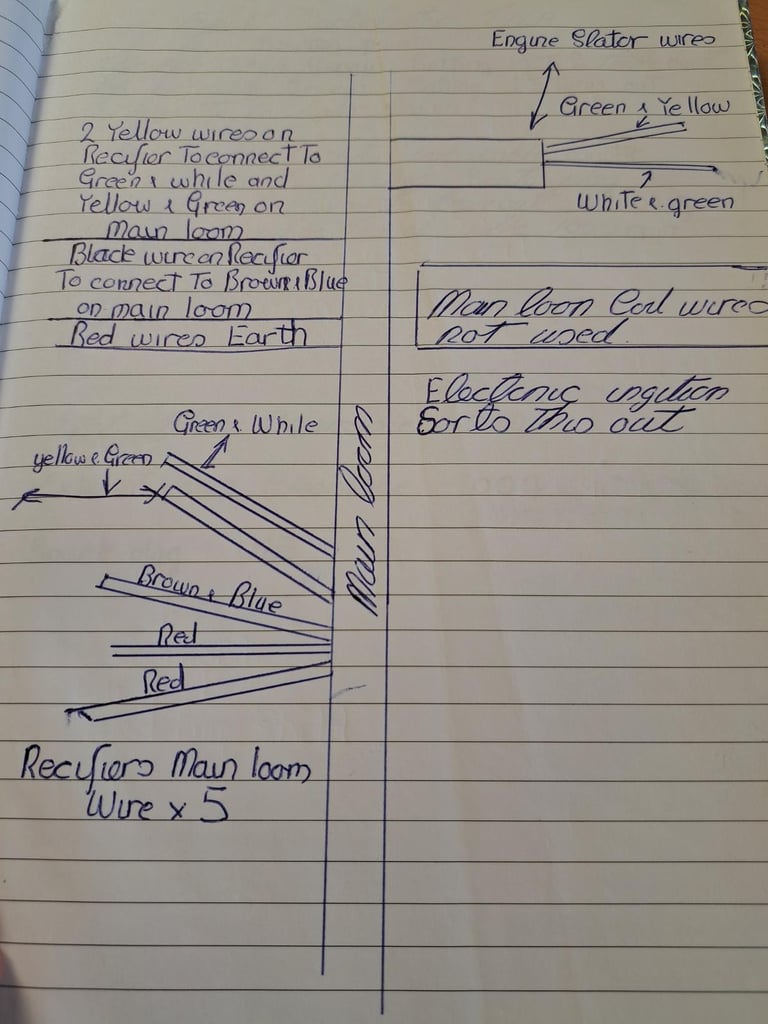 Engine Stator wires
Green & Yellow
White & green
2 Yellow wires on
Recifier To connect To
Green & white and
Yellow & Green on
Main loom
Black wire on Recifior
To connect To Brown & Blue
on main loom
Red wires Earth
Main loon Coil wires
not used.
Electonic ingition
Sorts This out
Green & White
yellow & Green
Main loom
Brown & Blue
Red
Red
Recifiers Main loom
Wire x 5